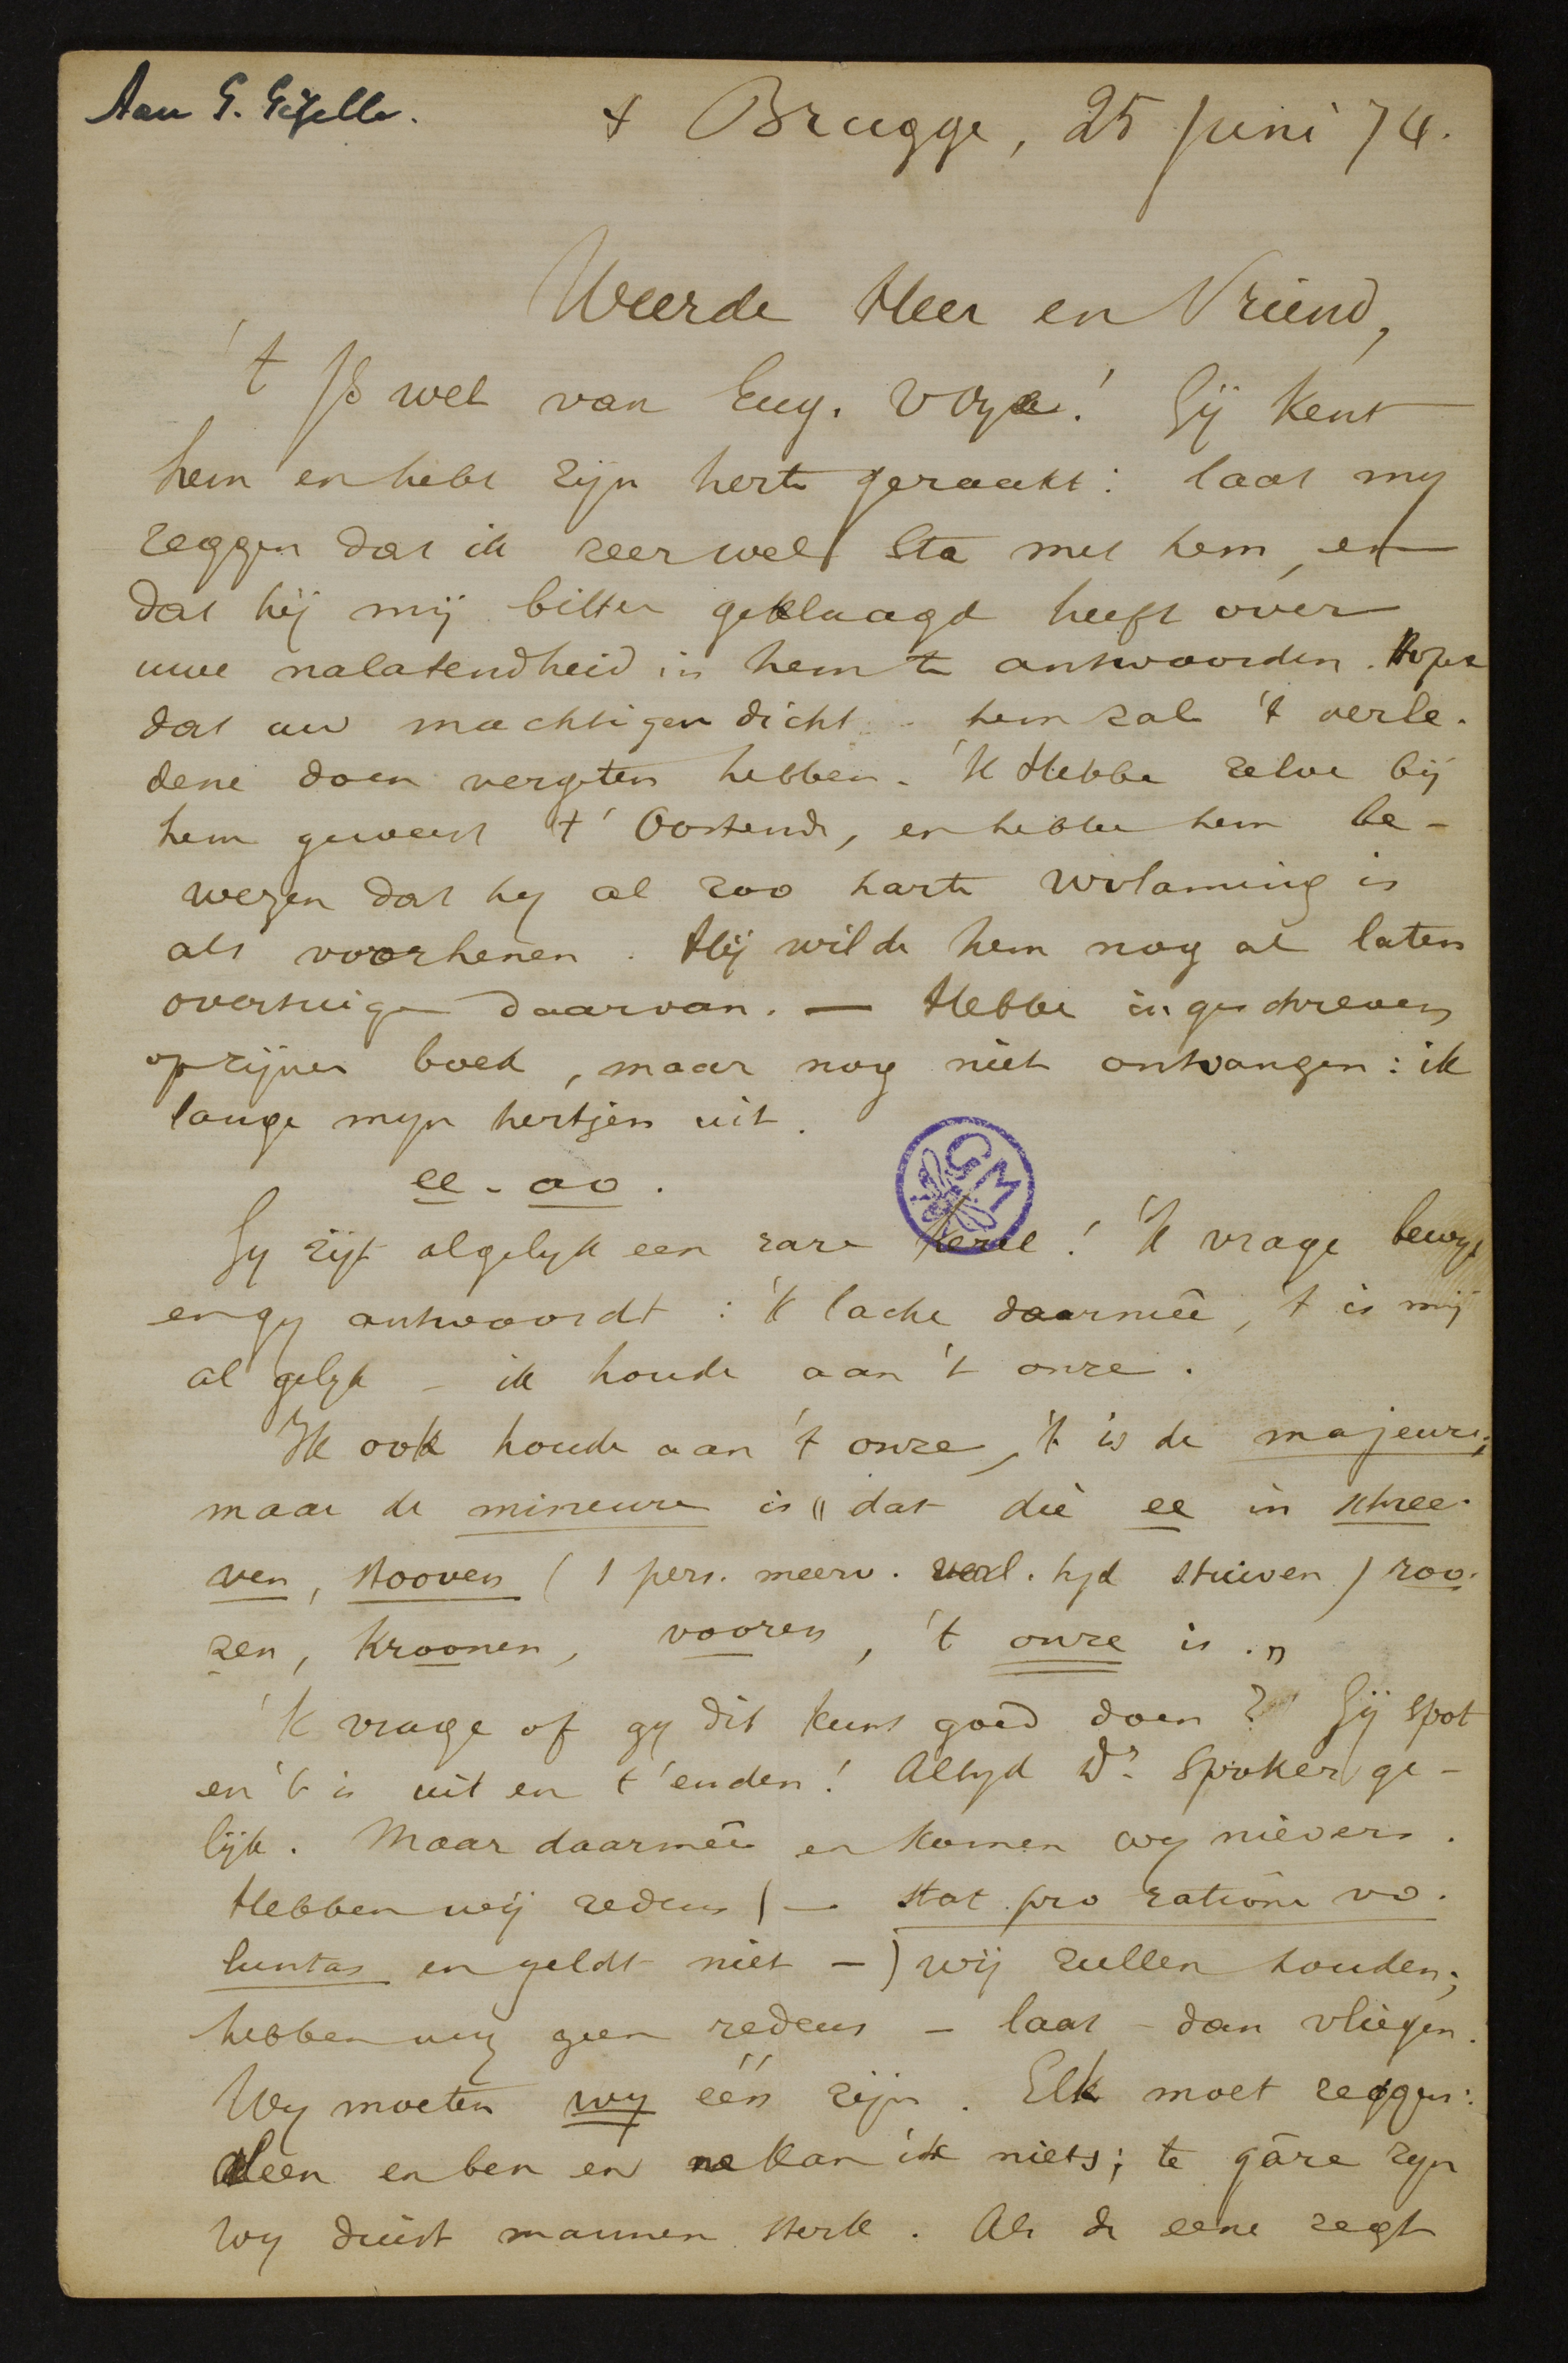 Aan G. Gezelle.
+ Brugge, 25 Juni 74.
Weerde Heer en Vriend,
't Is wel van Eug. Vrye! Gij kent
hem en hebt zijn herte geraakt: laat my
zeggen dat ik zeer wel sta met hem, en
dat hij mij bitter geklaagd heeft over
uwe nalatendheid in hem te antwoorden. Hope
dat uw machtigen dicht hem zal 't verle-
dene doen vergeten hebben. 'K Hebbe zelve bij
hem geweest t' Oostende, en hebbe hem be-
wezen dat hy al zoo harte vlaming is
als voorhenen. Hij wilde hem nog al laten
overtuigen daarvan. — Hebbe ingeschreven
op zijnen boek, maar nog niet ontvangen: ik
lange myn hertjen uit.
ee - oo.
Gy zijt algelyk een rare kerel! 'K vrage bewys
en gy antwoordt: 'k lache daarmeê, 't is mij
al gelyk - ik houde aan 't onze.
Ik ook houde aan 't onze, 't is de majeure;
maar de mineure is "dat die ee in schree-
ven, stooven (1 pers. meerv. verl. tyd stuiven) roo-
zen, kroonen, vooren, 't onze is."
'k vrage of gy dit kunt goed doen? Gij spot
en 't is uit en t'enden! Altyd Dr. Spoker ge-
lijk. Maar daarmeê en komen wy nievers.
Hebben wij redens (— stat pro ratione vo-
luntas en geldt niet —) wij zullen houden;
hebben wij geen redens - laat - dan vliegen.
Wy moeten wy één zijn. Elk moet zeggen:
alleen en ben en ne kan ik niets; te gâre zyn
wy duist mannen sterk. Als de eene zegt
GM